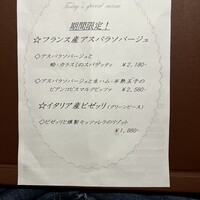 Today's special menu
期間限定！
☆フランス産アスパラソバージュ
◇アスパラソバージュと
蛤・カラスミのスパゲッティ
￥2,180-
◇アスパラソバージュと生ハム・半熟玉子の
ビアンコピスマルクピッツァ
￥2,580-
☆イタリア産ピゼッリ（グリーンピース）
◇ピゼッリと燻製モッツァレラのリゾット
￥1,880-